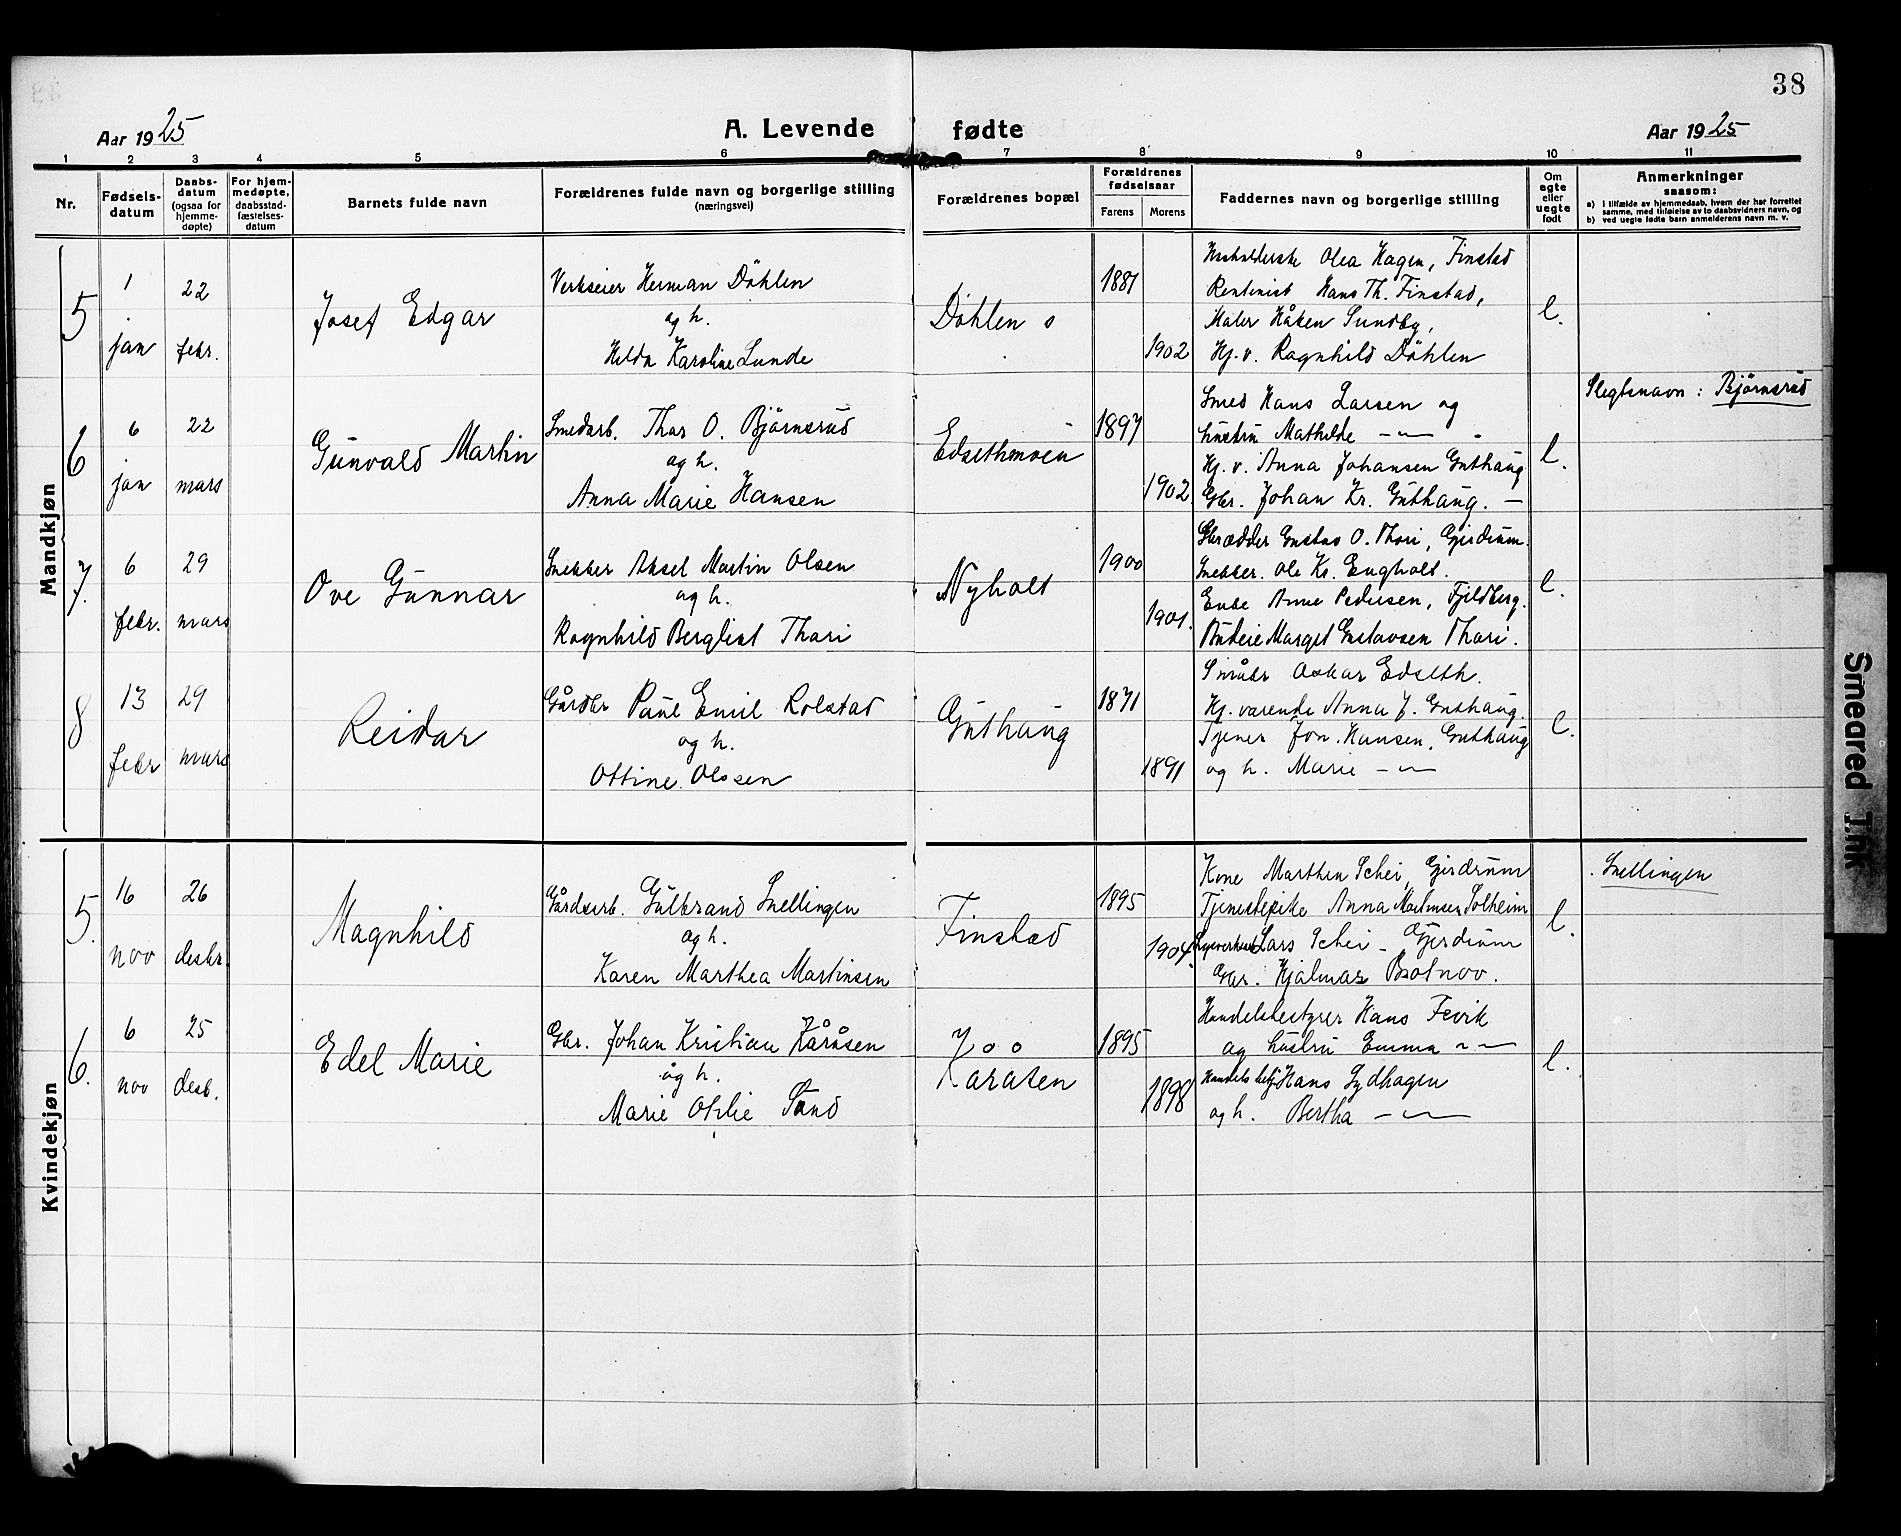 38
Aar 1925
A. Levende fødte
Aar 1925
1 2 3 4 5 6 7 8 9 10 11
Nr.
Fødsels-
datum
Daabs-
datum
(ogsaa for
hjemme-
døpte)
For hjem-
medøpte,
daabsstad-
fæstelses-
datum
Barnets fulde navn
Forældrenes fulde navn og borgerlige stilling
(næringsvei)
Forældrenes bopæl
Forældrenes
fødselsaar
Farens Morens
Faddernes navn og borgerlige stilling
Om
egte
eller
uegte
født
Anmerkninger
saasom:
a) i tilfælde av hjemmedaab, hvem der har forrettet
samme, med tilføielse av to daabsvidners navn, og
b) ved uegte fødte barn anmelderens navn m. v.
Mandkjøn
5
1
jan
22
febr.
Josef Edgar
Verkseier Herman Döhlen
og h.
Hilda Karoline Lunde
Döhlen s
1881
1902
Husholderske Olea Hagen, Finstad
Rentenist Hans Th. Finstad,
Maler Håken Sundby,
Hj. v. Ragnhild Döhlen
l.
6
6
jan
22
mars
Gunvald Martin
Smedarb. Thor O. Björnsrud
og h.
Anna Marie Hansen
Edsethmoen
1897
1902
Smed Hans Larsen og
hustru Mathilde —〃—
Hj. v. Anna Johansen Guthaug
Gbr. Johan Kr. Guthaug. —
l.
Slegtsnavn: Björnsrud
7.
6
febr.
29
mars
Ove Gunnar
Snekker Aksel Martin Olsen
og h.
Ragnhild Bergliot Thori
Nyholt
1900
1901.
Skrædder Gustav O. Thori, Gjerdrum.
Snekker. Ole Kr. Engholt.
Enke Anne Pedersen, Fjeldberg.
Budeie Margit Gustavsen Thori.
l.
8
13
febr
29
mars
Reidar
Gårdbr Paul Emil Rolstad
og h.
Ottine Olssen
Guthaug
1871
1891
Småbr Oskar Edseth.
Hj. værende Anna J. Guthaug.
Tjener Jon. Hansen, Guthaug
og h. Marie —〃—
l.
Kvindekjøn
5.
16
nov
26
desbr.
Magnhild
Gårdsarb. Gulbrand Snellingen
og h.
Karen Marthea Martinsen
Finstad
1895
1904.
Kone Marthen Schei, Gjerdrum
Tjenestepike Anna Martinsen Solheim
Lars Schei - Gjerdrum
Gbr. Hjalmar Brotnov.
l.
Snellingen
6.
6
nov
25
desb.
Edel Marie
Gbr. Johan Kristian Kåråsen
og h.
Marie Otilie Sand
Kåråsen
1895
1898
Handelsbestyrer Hans Fevik
og hustru Emma —〃—
Handelsbetj Hans Lydhagen
og h. Bertha —〃—
l.
Smeared Ink